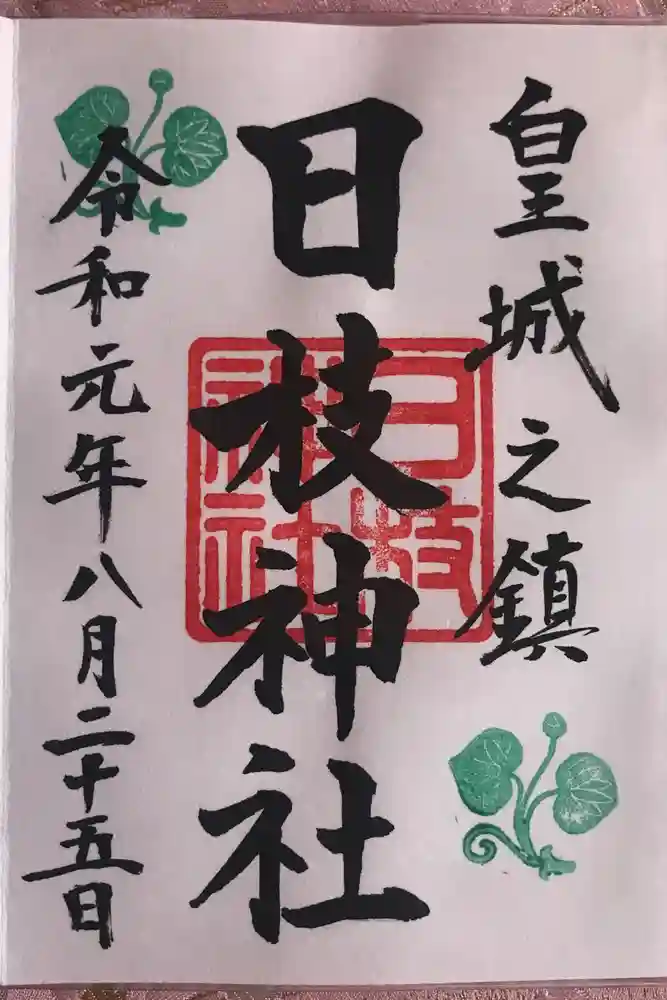 皇城之鎮
日枝神社
日枝神社
令和元年八月二十五日